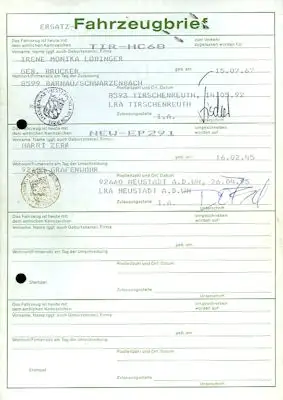 ERSATZ-
Fahrzeugbrief
Das Fahrzeug ist heute mit
dem amtlichen Kennzeichen
TIR-HC68
zum Verkehr
zugelassen worden für
Vorname, Name (ggf. auch Geburtsname), Firma
IRENE MONIKA
GEB.
geb. am
Wohnort/Firmensitz am Tag der Zulassung
8599 BARNAU/SCHWARZENBACH
Postleitzahl und Ort, Datum
8593 TIRSCHENREUTH,
Zulassungsstelle
LRA TIRSCHENREUTH
I.A.
Unterschrift
Das Fahrzeug ist heute mit
dem amtlichen Kennzeichen
NEW-EP291
Umgeschrieben
worden auf
Vorname, Name (ggf. auch Geburtsname), Firma
HARRI ZERR
geb. am
16.02.45
Wohnort/Firmensitz am Tag der Umschreibung
GRAFENWÖHR
Postleitzahl und Ort, Datum
92660 NEUSTADT A.D.WN,
LRA NEUSTADT A.D. WN
Zulassungsstelle
I.A.
Unterschrift
Das Fahrzeug ist heute mit
dem amtlichen Kennzeichen
Umgeschrieben
worden auf
Vorname, Name (ggf. auch Geburtsname), Firma
geb. am
Wohnort/Firmensitz am Tag der Umschreibung
Postleitzahl und Ort, Datum
Stempel
Zulassungsstelle
Unterschrift
Das Fahrzeug ist heute mit
dem amtlichen Kennzeichen
Umgeschrieben
worden auf
Vorname, Name (ggf. auch Geburtsname), Firma
geb. am
Wohnort/Firmensitz am Tag der Umschreibung
Postleitzahl und Ort, Datum
Stempel
Zulassungsstelle
Unterschrift